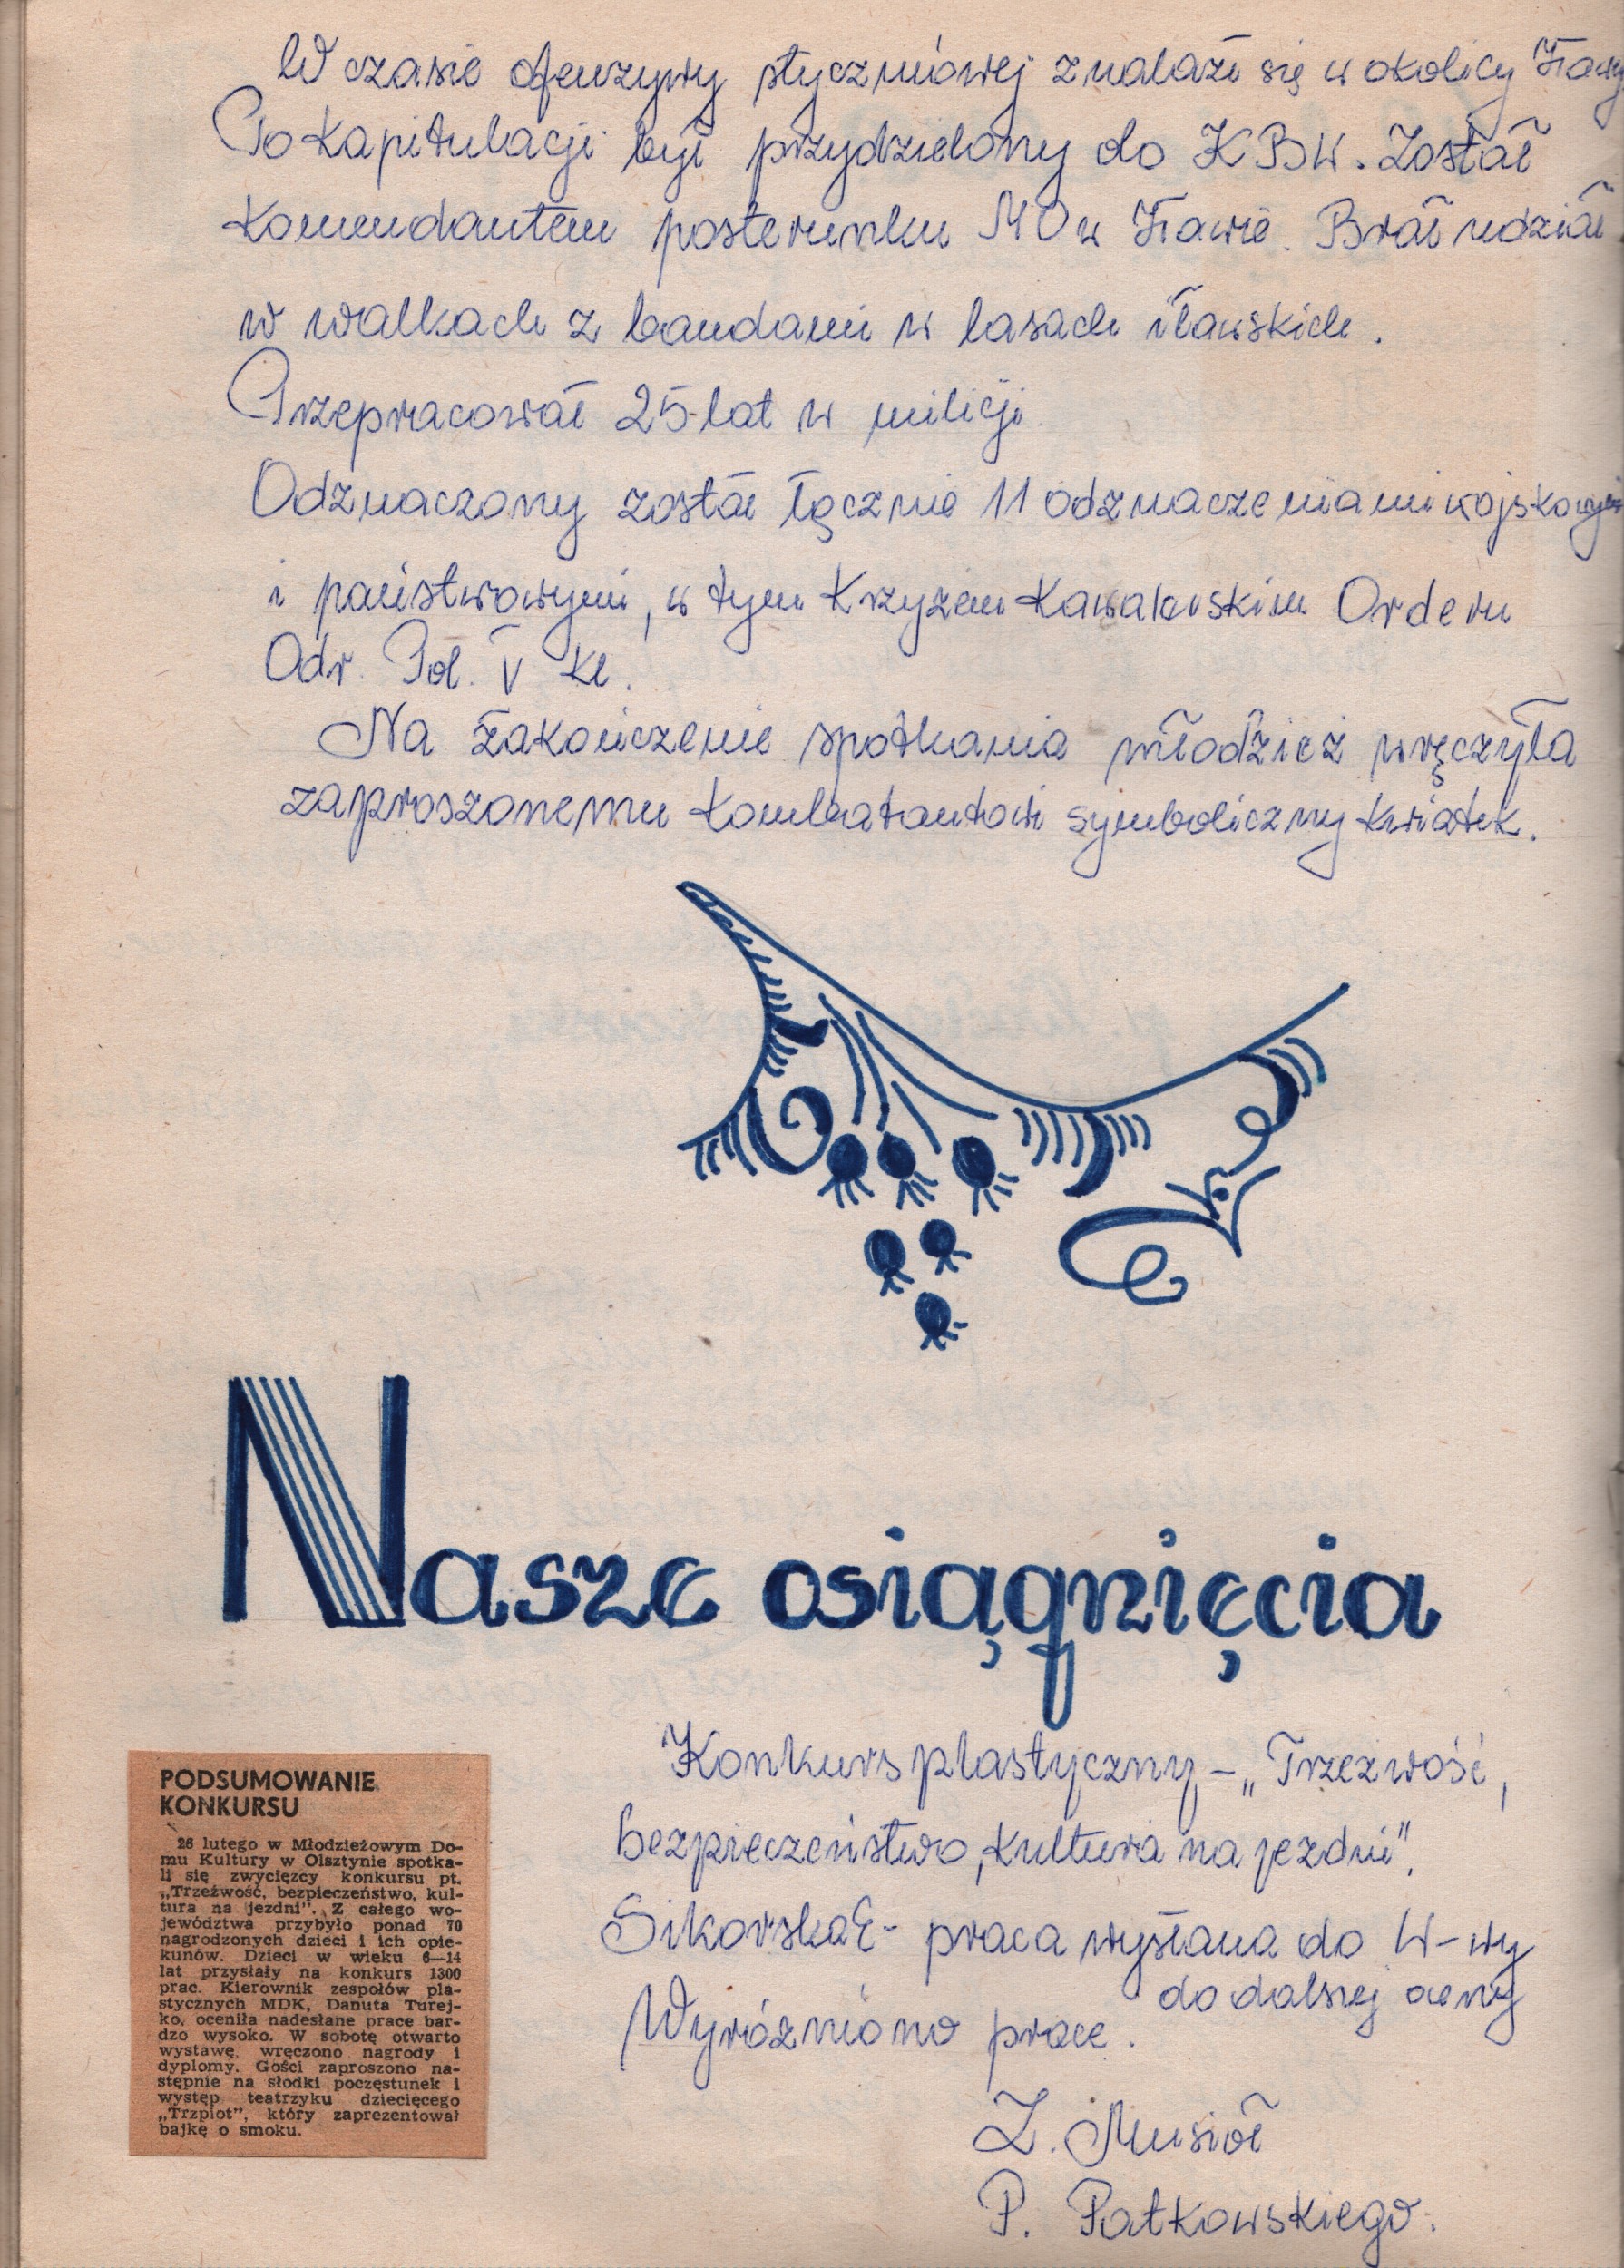 W czasie ofenzywy styczniowej znalazł się w okolicy Iławy
Po kapitulacji był przydzielony do KBW. Został
Komendantem posterunku MO w Iławie. Brał udział
w walkach z bandami w lasach iławskich.
Przepracował 25-lat w milicji
Odznaczony został łącznie 11 odznaczeniami wojskowymi
i państwowymi, w tym Krzyzem Kawalerskim Orderu
Odr. Pol. V kl.
Na zakończenie spotkania młodzież wręczyła
zaproszonemu kombatantowi symboliczny kwiatek.
Nasze osiągnięcia
PODSUMOWANIE
KONKURSU
26 lutego w Młodzieżowym Do-
mu Kultury w Olsztynie spotka-
li się zwycięzcy konkursu pt.
„Trzeźwość, bezpieczeństwo, kul-
tura na jezdni". Z całego wo-
jewództwa przybyło ponad 70
nagrodzonych dzieci i ich opie-
kunów. Dzieci w wieku 6—14
lat przysłały na konkurs 1300
prac. Kierownik zespołów pla-
stycznych MDK, Danuta Turej-
ko, oceniła nadesłane prace bar-
dzo wysoko. W sobotę otwarto
wystawę, wręczono nagrody i
dyplomy. Gości zaproszono na-
stępnie na słodki poczęstunek i
występ teatrzyku dziecięcego
„Trzpiot", który zaprezentował
bajkę o smoku.
Konkurs plastyczny - „Trzezwość,
bezpieczeństwo, kultura na jezdni".
Sikorska E - praca wysłana do W-wy
do dalszej oceny
Wyróżniono prace.
Z. Musiał
P. Patkowskiego.